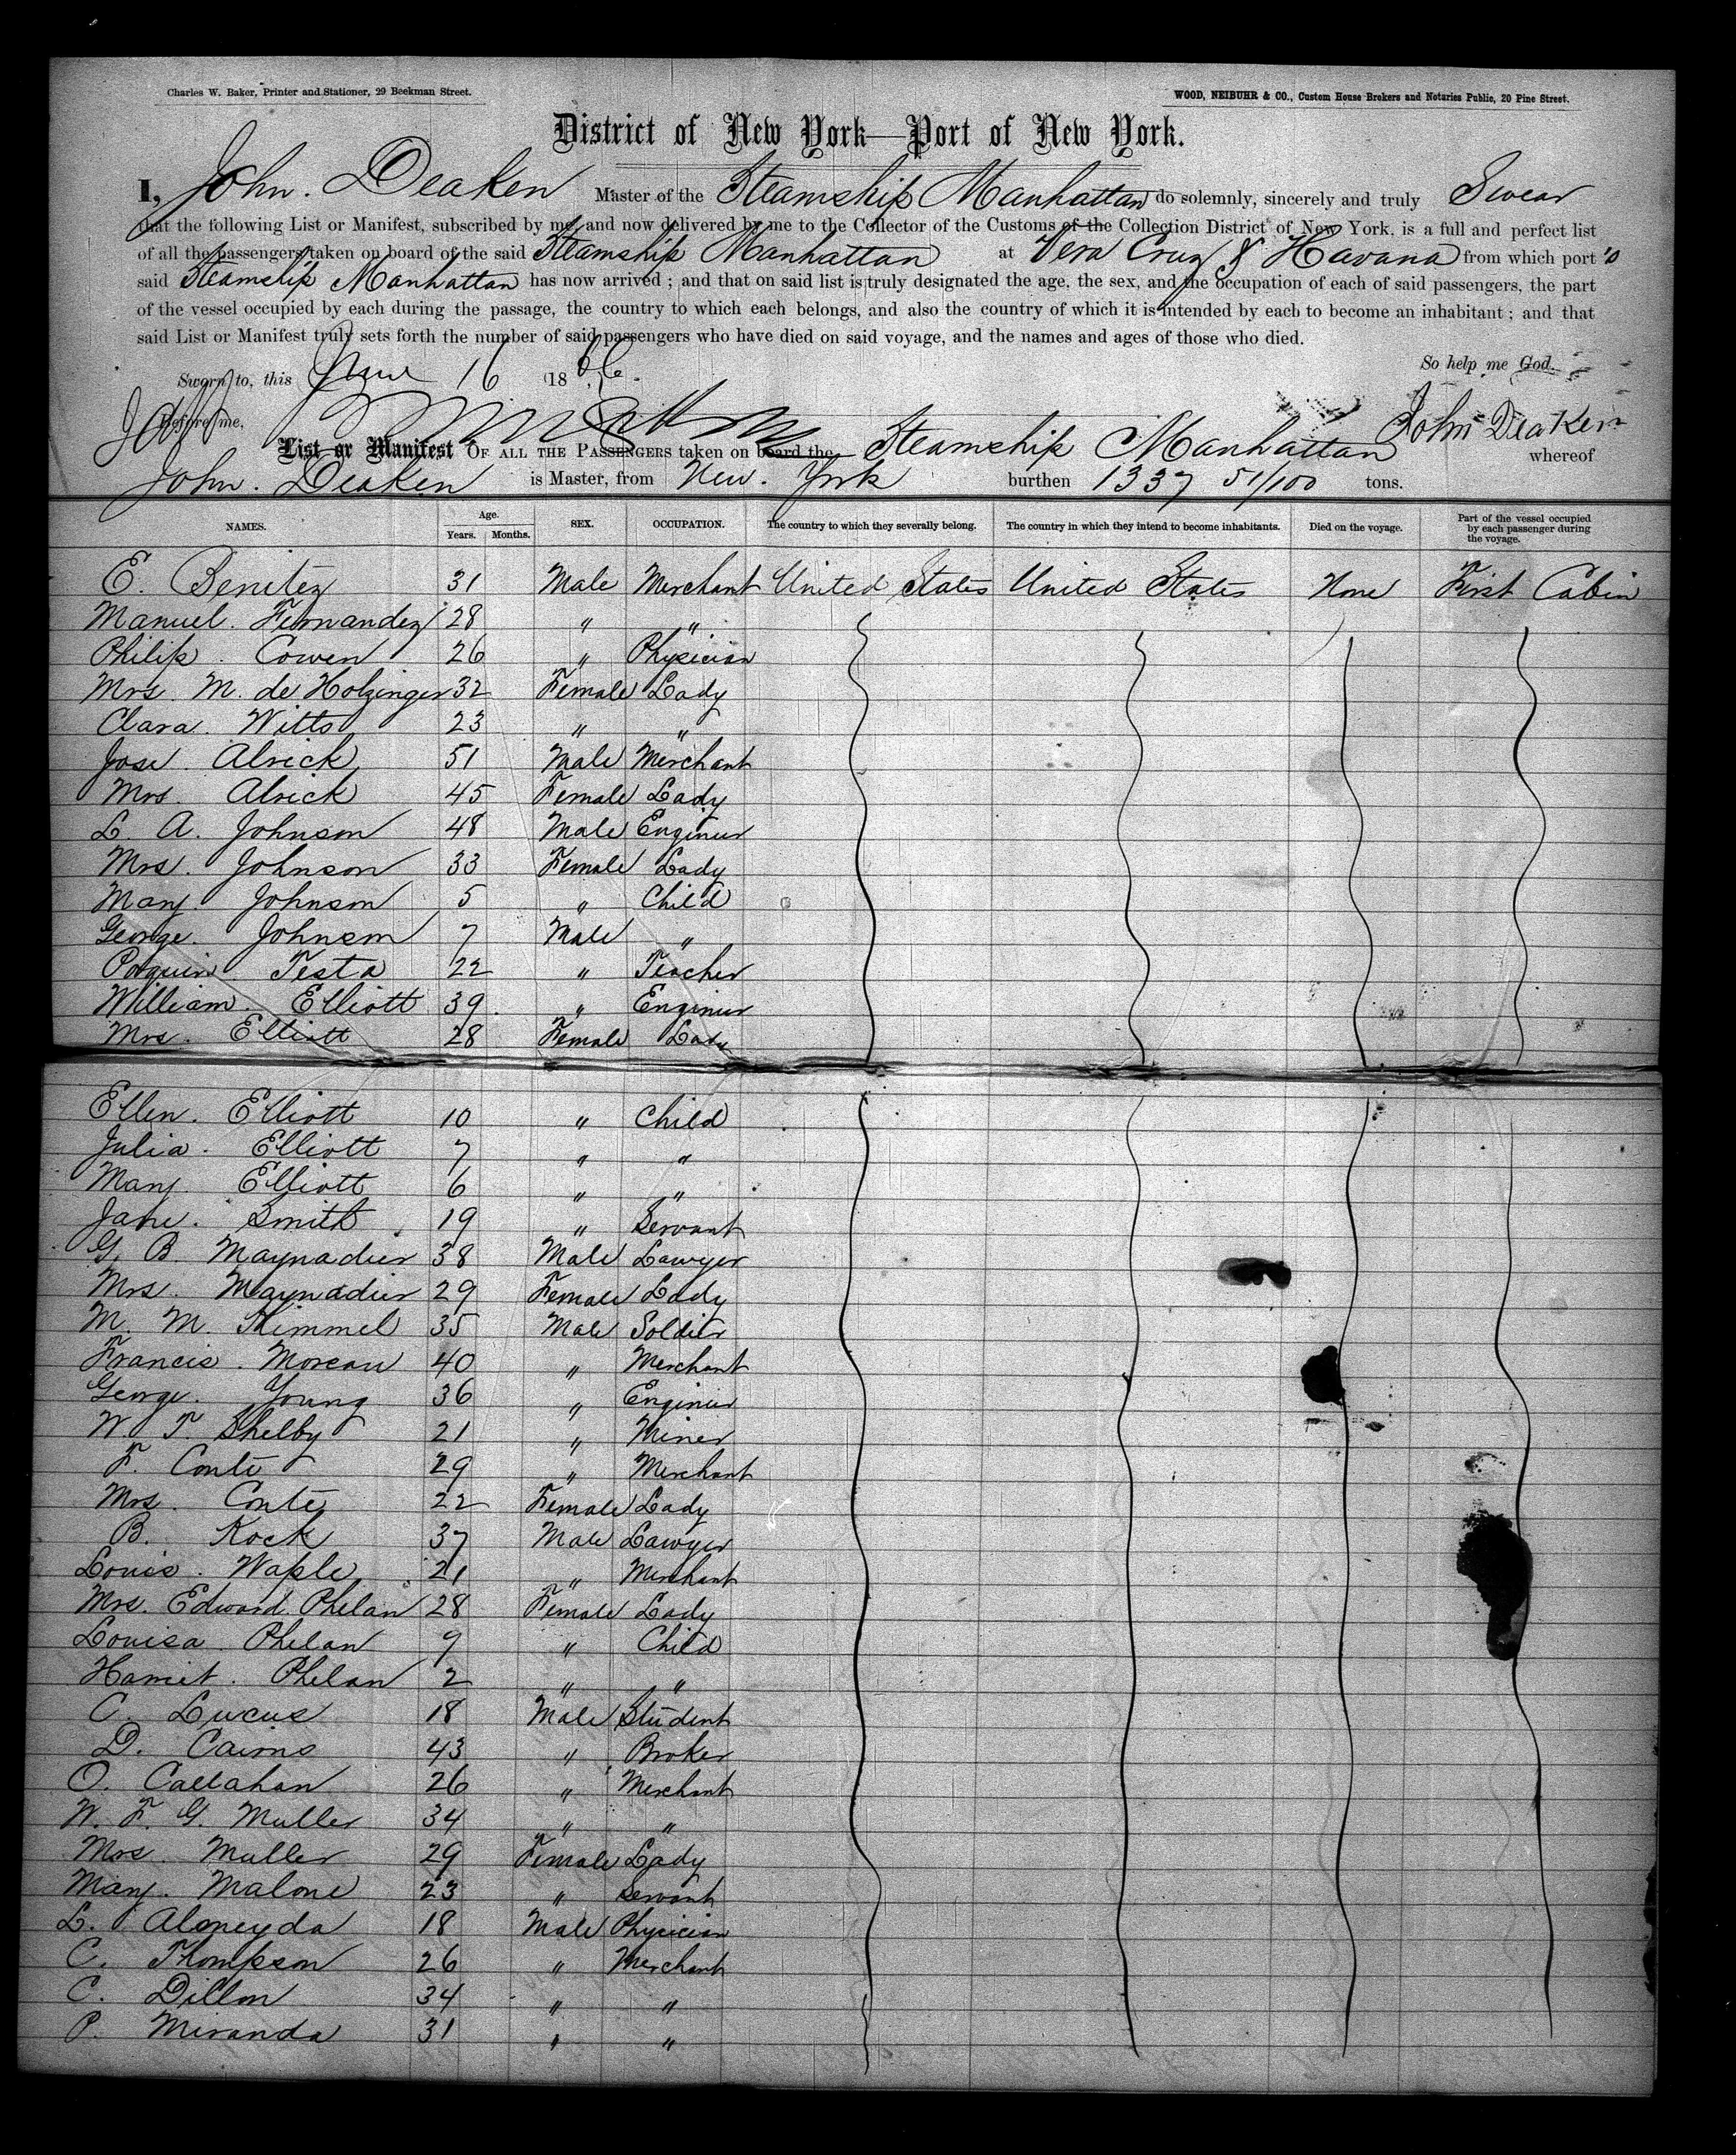 Charles W. Baker, Printer and Stationer, 29 Beekman Street.
WOOD, NEIBUHR & CO., Custom House Brokers and Notaries Public, 20 Pine Street.
District of New York—Port of New York.
I, John. Deaken Master of the Steamship Manhattan do solemnly, sincerely and truly Swear
that the following List or Manifest, subscribed by me, and now delivered by me to the Collector of the Customs of the Collection District of New York, is a full and perfect list
of all the passengers taken on board of the said Steamship Manhattan at Vera Cruz & Havana from which port's
said Steamship Manhattan has now arrived ; and that on said list is truly designated the age, the sex, and the occupation of each of said passengers, the part
of the vessel occupied by each during the passage, the country to which each belongs, and also the country of which it is intended by each to become an inhabitant ; and that
said List or Manifest truly sets forth the number of said passengers who have died on said voyage, and the names and ages of those who died.
So help me God.
Sworn to, this June 16 1866.
Before me,
John Deaken
List or Manifest OF ALL THE PASSENGERS taken on board the Steamship Manhattan whereof
John. Deaken is Master, from New. York burthen 1337 51/100 tons.
NAMES. Age. Years. Months. SEX. OCCUPATION. The country to which they severally belong. The country in which they intend to become inhabitants. Died on the voyage. Part of the vessel occupied by each passenger during the voyage.
E. Benitez 31 Male Merchant United States United States None First Cabin
Manuel. Fernandez 28 " "
Philip. Cowen 26 " Physician
Mrs. M. de Holzinger 32 Female Lady
Clara. Witts 23 " "
Jose. Alrick 51 Male Merchant
Mrs. Alrick 45 Female Lady
L. A. Johnson 48 Male Engineer
Mrs. Johnson 33 Female Lady
Mary Johnson 5 " Child
George. Johnson 7 Male "
Testa 22 " Teacher
William. Elliott 39 " Engineer
Mrs. Elliott 28 Female Lady
Ellen. Elliott 10 " Child
Julia. Elliott 7 " "
Mary. Elliott 6 " "
Jane. Smith 19 " Servant
G. B. Maynadier 38 Male Lawyer
Mrs. Maynadier 29 Female Lady
M. M. Kimmel 35 Male Soldier
Francis. Moreau 40 " Merchant
George. Young 36 " Engineer
W. T. Shelby 21 " Miner
F. Conte 29 " Merchant
Mrs. Conte 22 Female Lady
B. Rock 37 Male Lawyer
Louis. Waple 21 " Merchant
Mrs. Edward Phelan 28 Female Lady
Louisa. Phelan 9 " Child
Harriet. Phelan 2 " "
C. Lucus 18 Male Student
D. Cairns 43 " Broker
O. Callahan 26 " Merchant
W. F. G. Muller 34 " "
Mrs. Muller 29 Female Lady
Mary. Malone 23 " Servant
L. Almeyda 18 Male Physician
C. Thompson 26 " Merchant
C. Dillon 34 " "
P. Miranda 31 " "